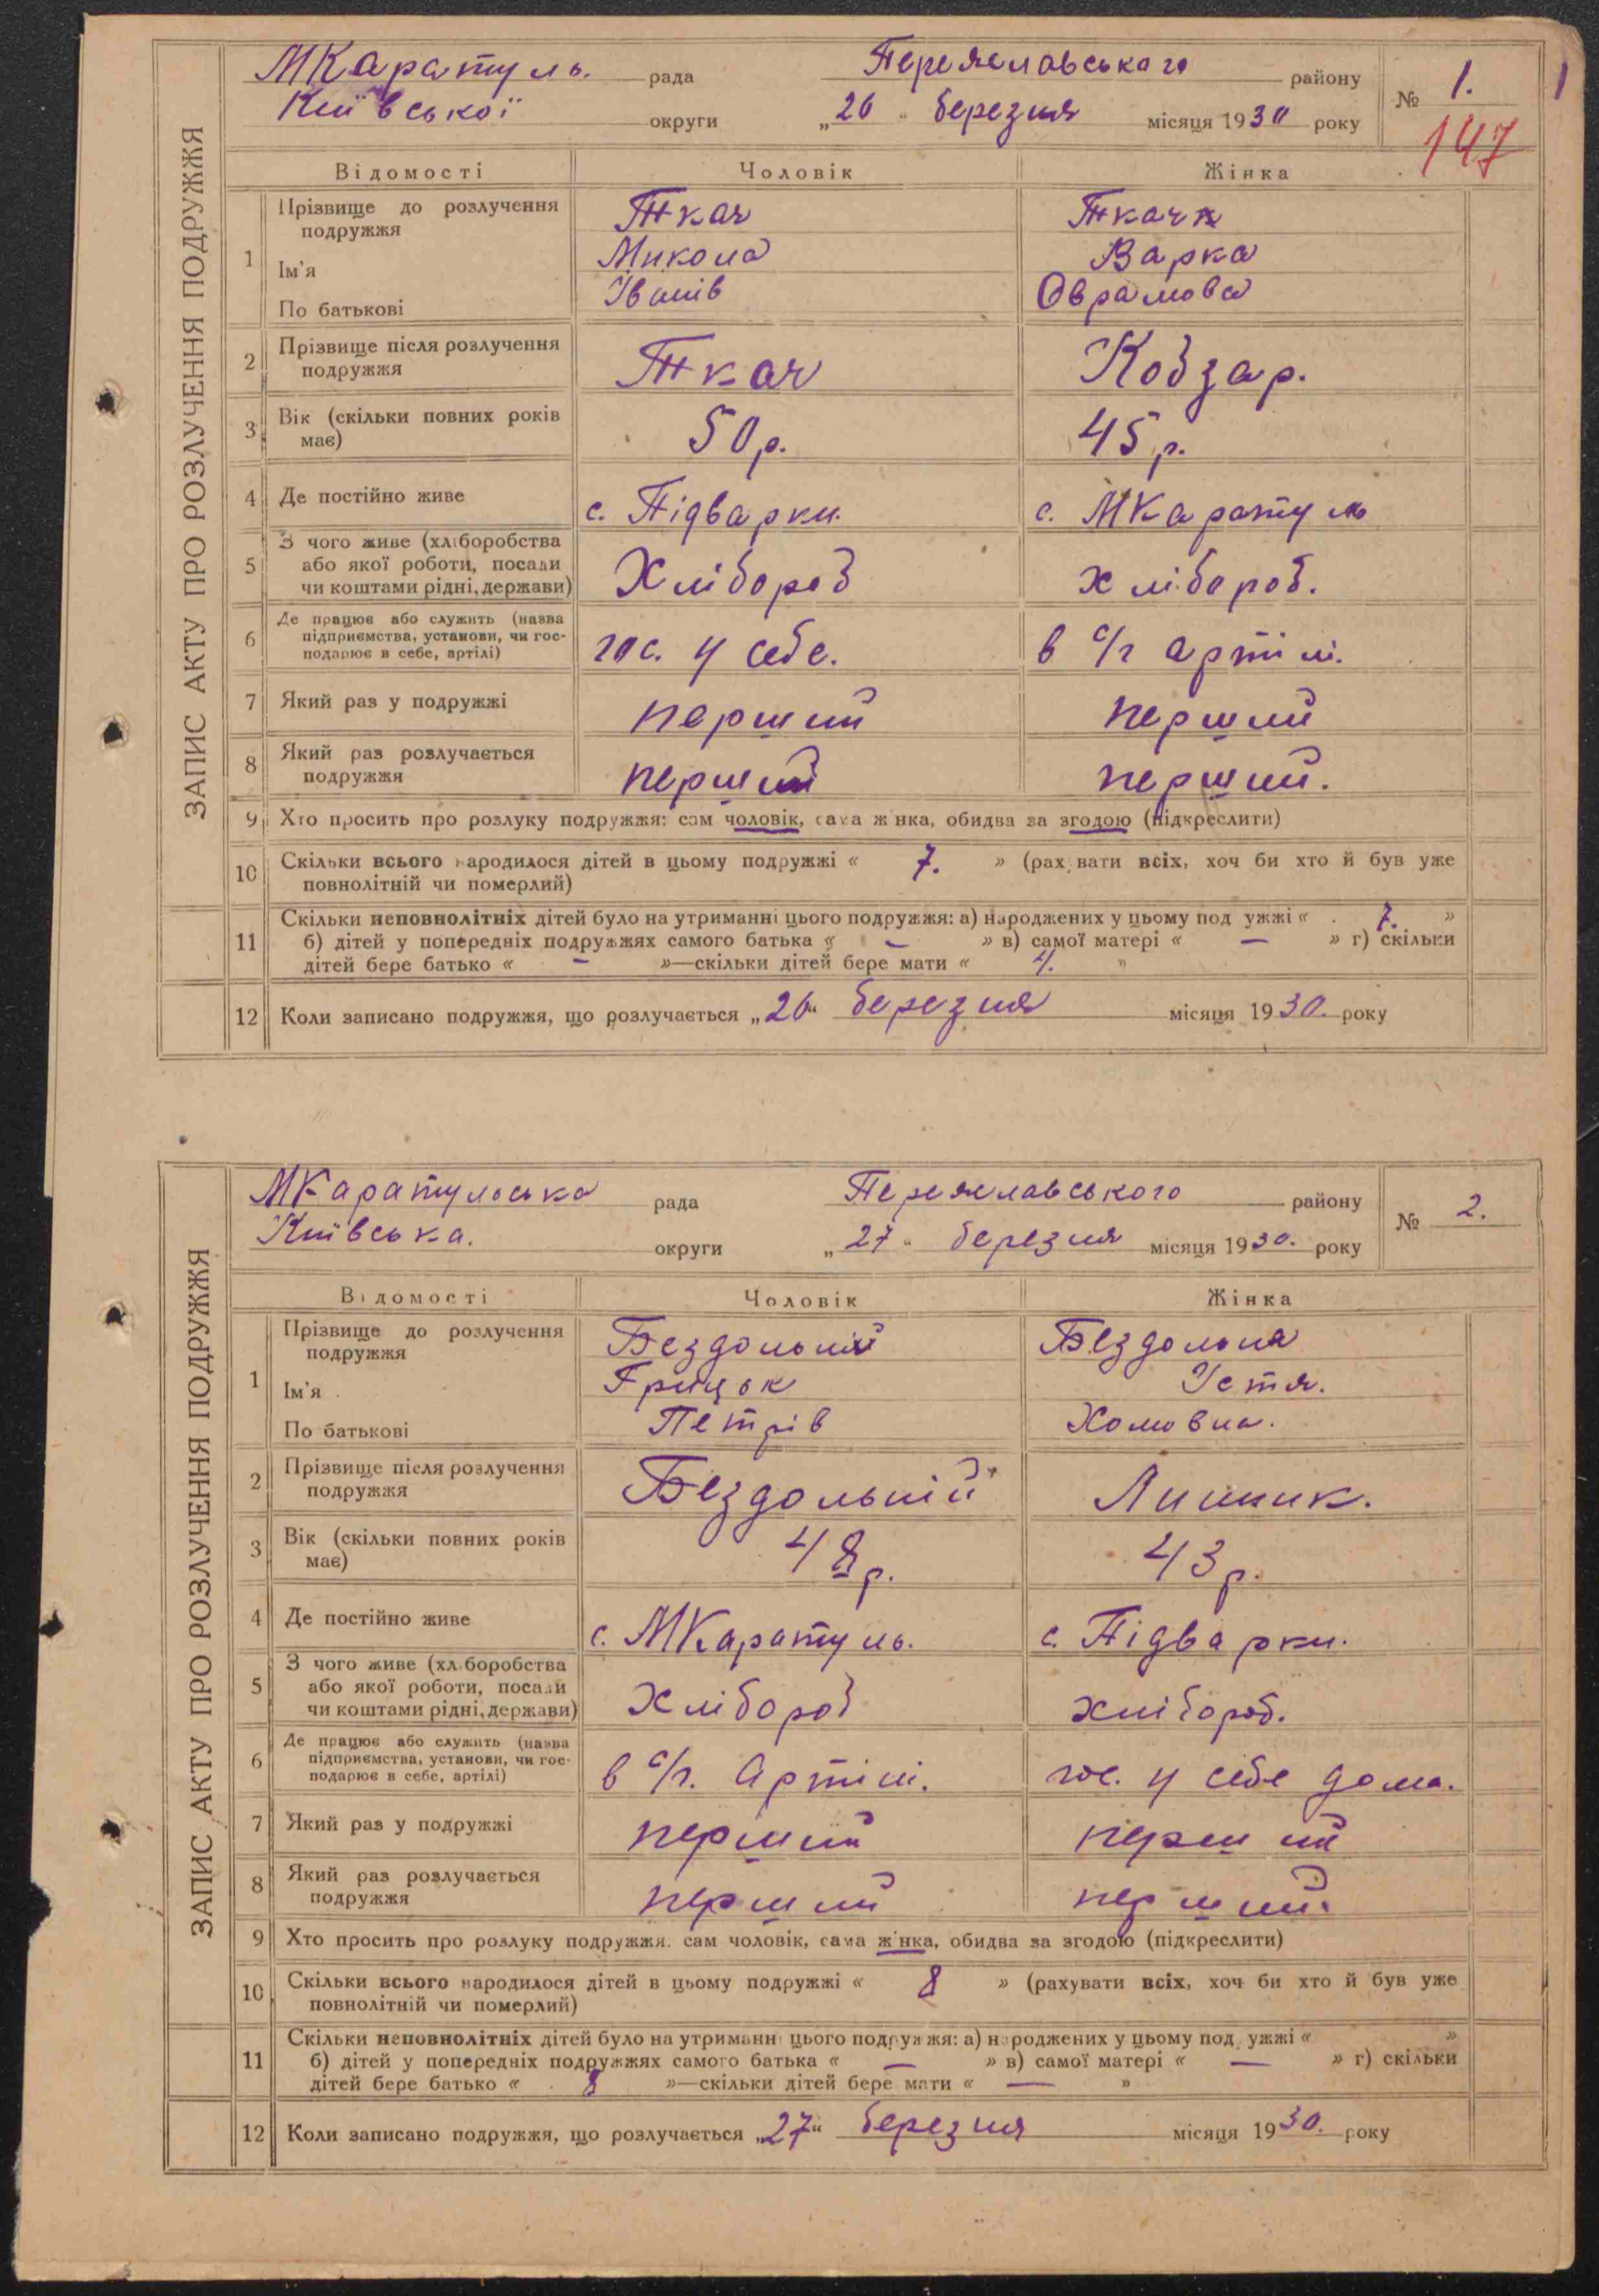 ЗАПИС АКТУ ПРО РОЗЛУЧЕННЯ ПОДРУЖЖЯ
МКаратуль. рада Переяславського району № 1. 1
Київської округи „26" березня місяця 1930 року 147
Відомості Чоловік Жінка
1 Прізвище до розлучення подружжя Ткач Ткач
Ім'я Микола Варка
По батькові Іванів Оврамова
2 Прізвище після розлучення подружжя Ткач Кобзар.
3 Вік (скільки повних років має) 50 р. 45 р.
4 Де постійно живе с. Підварки. с. МКаратуль
5 З чого живе (хліборобства або якої роботи, посади чи коштами рідні, держави) Хлібороб хлібороб.
6 Де працює або служить (назва підприємства, установи, чи господарює в себе, артілі) гос. у себе. в с/г артілі.
7 Який раз у подружжі перший перший
8 Який раз розлучається подружжя перший перший.
9 Хто просить про розлуку подружжя: сам чоловік, сама жінка, обидва за згодою (підкреслити)
10 Скільки всього народилося дітей в цьому подружжі « 7. » (рахувати всіх, хоч би хто й був уже
повнолітній чи померлий)
11 Скільки неповнолітніх дітей було на утриманні цього подружжя: а) народжених у цьому подружжі « 7. »
б) дітей у попередніх подружжях самого батька « — » в) самої матері « — » г) скільки
дітей бере батько « — »—скільки дітей бере мати « 4. »
12 Коли записано подружжя, що розлучається „26" березня місяця 1930. року
ЗАПИС АКТУ ПРО РОЗЛУЧЕННЯ ПОДРУЖЖЯ
МКаратульська рада Переяславського району № 2.
Київська. округи „27" березня місяця 1930. року
Відомості Чоловік Жінка
1 Прізвище до розлучення подружжя Бездольний Бездольна
Ім'я Грицьк Устя.
По батькові Петрів Хомовна.
2 Прізвище після розлучення подружжя Бездольній Линник.
3 Вік (скільки повних років має) 48 р. 43 р.
4 Де постійно живе с. МКаратуль. с. Підварки.
5 З чого живе (хліборобства або якої роботи, посади чи коштами рідні, держави) Хлібороб хлібороб.
6 Де працює або служить (назва підприємства, установи, чи господарює в себе, артілі) в с/г. Артілі. гос. у себе дома.
7 Який раз у подружжі перший перший
8 Який раз розлучається подружжя перший перший.
9 Хто просить про розлуку подружжя: сам чоловік, сама жінка, обидва за згодою (підкреслити)
10 Скільки всього народилося дітей в цьому подружжі « 8 » (рахувати всіх, хоч би хто й був уже
повнолітній чи померлий)
11 Скільки неповнолітніх дітей було на утриманні цього подружжя: а) народжених у цьому подружжі « »
б) дітей у попередніх подружжях самого батька « — » в) самої матері « — » г) скільки
дітей бере батько « 8 »—скільки дітей бере мати « — »
12 Коли записано подружжя, що розлучається „27" березня місяця 1930. року